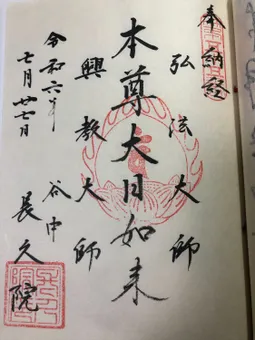 奉納経
弘法大師
本尊大日如来
興教大師
谷中
長久院
令和六年
七月廿七日